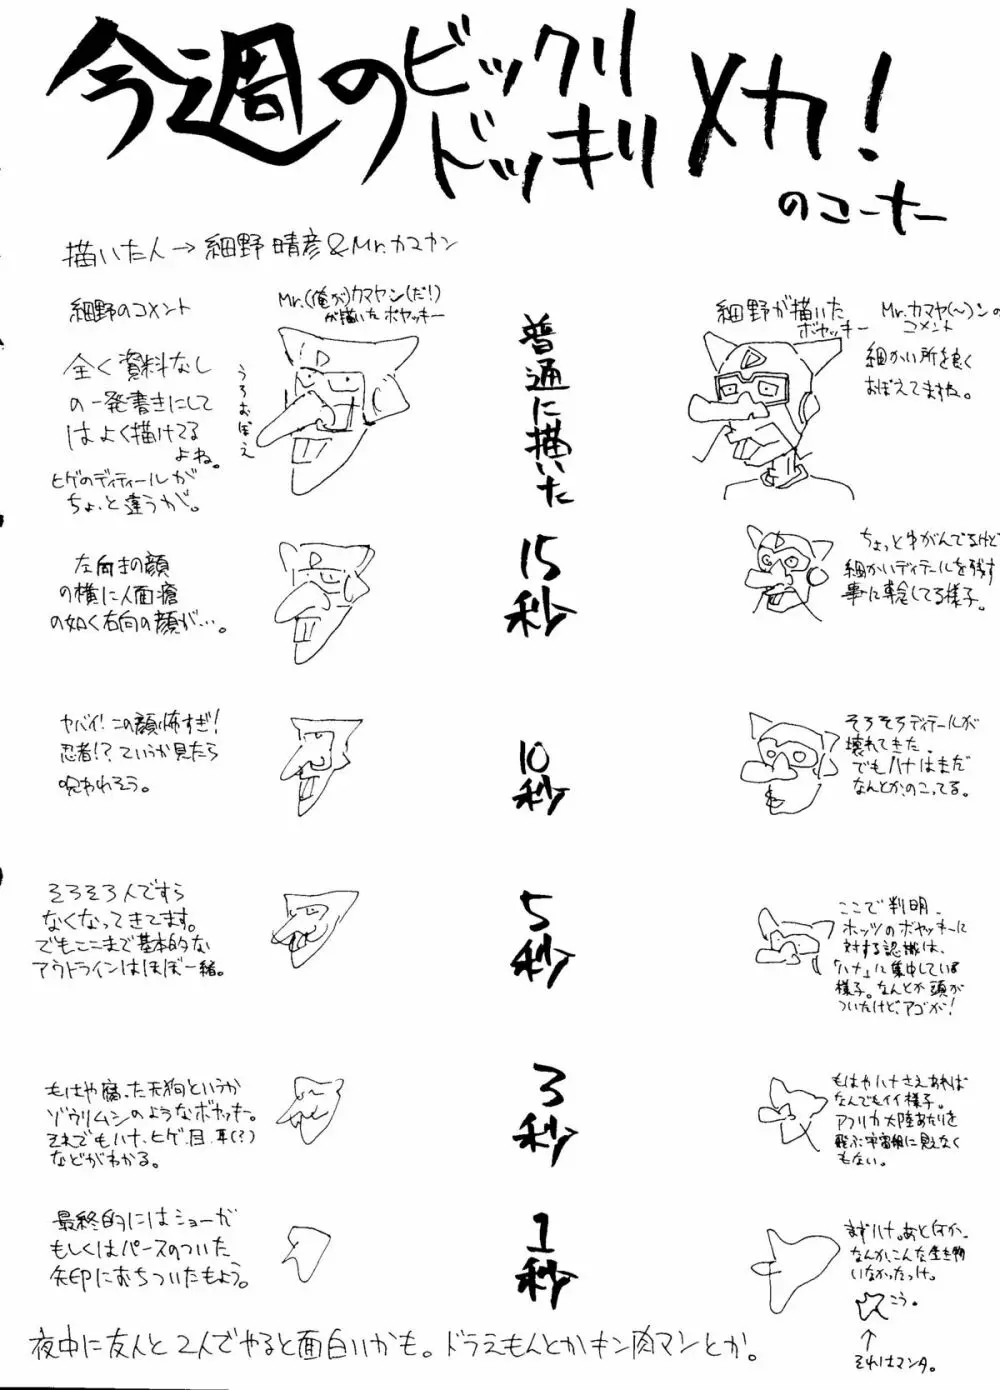 今週のビックリ
ドッキリメカ!
のコーナー
描いた人→細野晴彦&Mr.カマヤン
細野のコメント
Mr.(俺が)カマヤン(だ!)
が描いたボヤッキー
うろおぼえ
全く資料なし
の一発書きにして
はよく描けてる
よね。
ヒゲのディティールが
ちょっと違うが。
普通に描いた
細野が描いた
ボヤッキー
Mr.カマヤ(〜)ンの
コメント
細かい所を良く
おぼえてますね。
左向きの顔
の横に人面瘡
の如く右向の顔が…。
15秒
ちょっとゆがんでるけど
細かいディテールを残す
事に専念してる様子。
ヤバイ!この顔怖すぎ!
忍者!?ていうか見たら
呪われそう。
10秒
そろそろディテールが
壊れてきた。
でもハナはまだ
なんとかのこってる。
そろそろ人ですら
なくなってきてます。
でもここまで基本的な
アウトラインはほぼ一緒。
5秒
ここで判明。
ホッツのボヤッキーに
対する認識は、
「ハナ」に集中している
様子。なんとか頭が
ついたけど、アゴが!
もはや腐った天狗というか
ゾウリムシのようなボヤッキー。
それでもハナ、ヒゲ、目、耳(?)
などがわかる。
3秒
もはやハナさえあれば
なんでもイイ様子。
アフリカ大陸あたりを
飛ぶ宇宙船に見えなく
もない。
最終的にはショーガ
もしくはパースのついた
矢印におちついたもよう。
1秒
まずハナ。あと何か。
なんか、こんな生き物
いなかったっけ。
こう。
↑
それはマンタ。
夜中に友人と2人でやると面白いかも。ドラえもんとかキン肉マンとか。